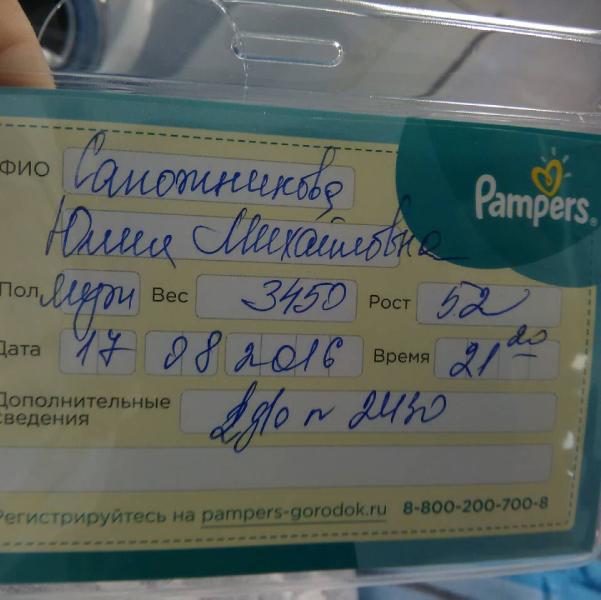 ФИО Сапожникова
Pampers
Юлия Михайловна
Пол муж Вес 3450 Рост 52
Дата 17 08 2016 Время 21 20
Дополнительные
сведения
№ 2430
Регистрируйтесь на pampers-gorodok.ru 8-800-200-700-8